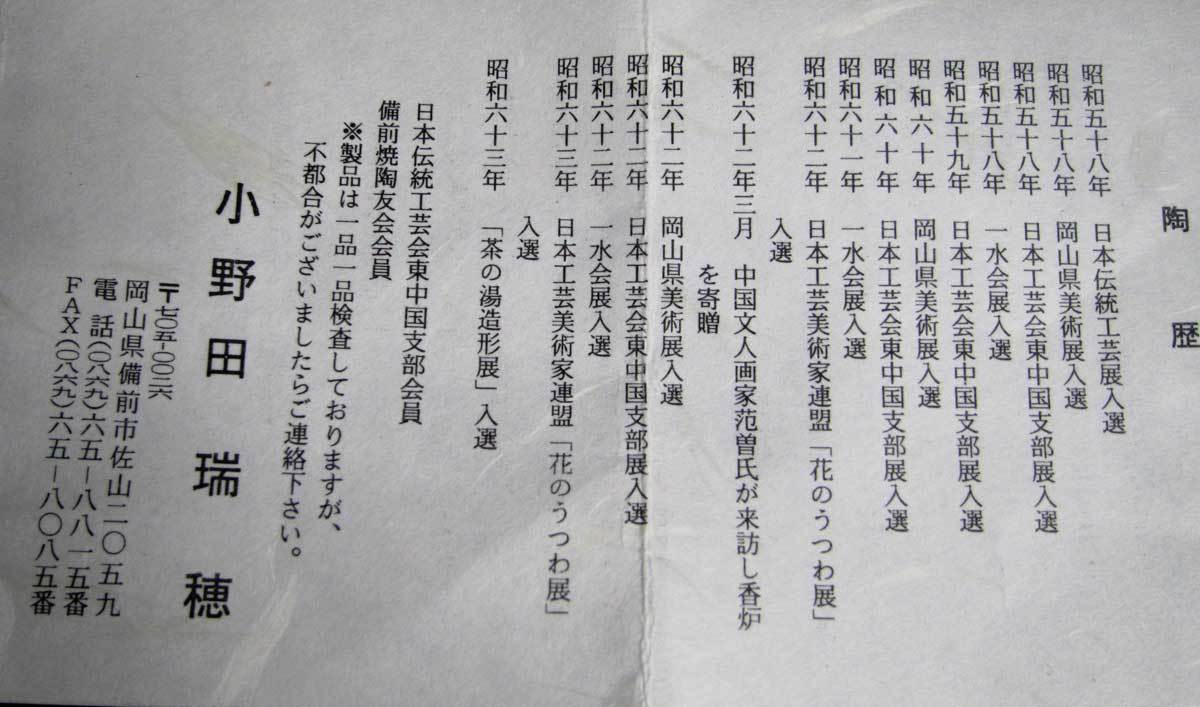 陶歴
昭和五十八年 日本伝統工芸展入選
昭和五十八年 岡山県美術展入選
昭和五十八年 日本工芸会東中国支部展入選
昭和五十八年 一水会展入選
昭和五十九年 日本工芸会東中国支部展入選
昭和六十年 岡山県美術展入選
昭和六十年 日本工芸会東中国支部展入選
昭和六十一年 一水会展入選
昭和六十二年 日本工芸美術家連盟「花のうつわ展」
入選
昭和六十二年三月 中国文人画家范曽氏が来訪し香炉
を寄贈
昭和六十二年 岡山県美術展入選
昭和六十二年 日本工芸会東中国支部展入選
昭和六十二年 一水会展入選
昭和六十三年 日本工芸美術家連盟「花のうつわ展」
入選
昭和六十三年 「茶の湯造形展」入選
日本伝統工芸会東中国支部会員
備前焼陶友会会員
※製品は一品一品検査しておりますが、
不都合がございましたらご連絡下さい。
小野田瑞穂
〒七〇五-〇〇二六
岡山県備前市佐山二〇五九
電話(〇八六九)六五-八八一五番
FAX(〇八六九)六五-八〇八五番